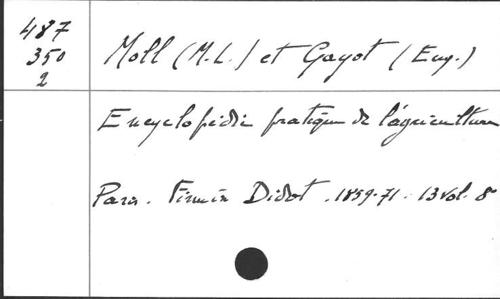 487
350
2
Moll (M.L.) et Gayot (Eug.)
Encyclopédie pratique de l'agriculture
Paris. Firmin Didot. 1859-71. 13 vol. 8°